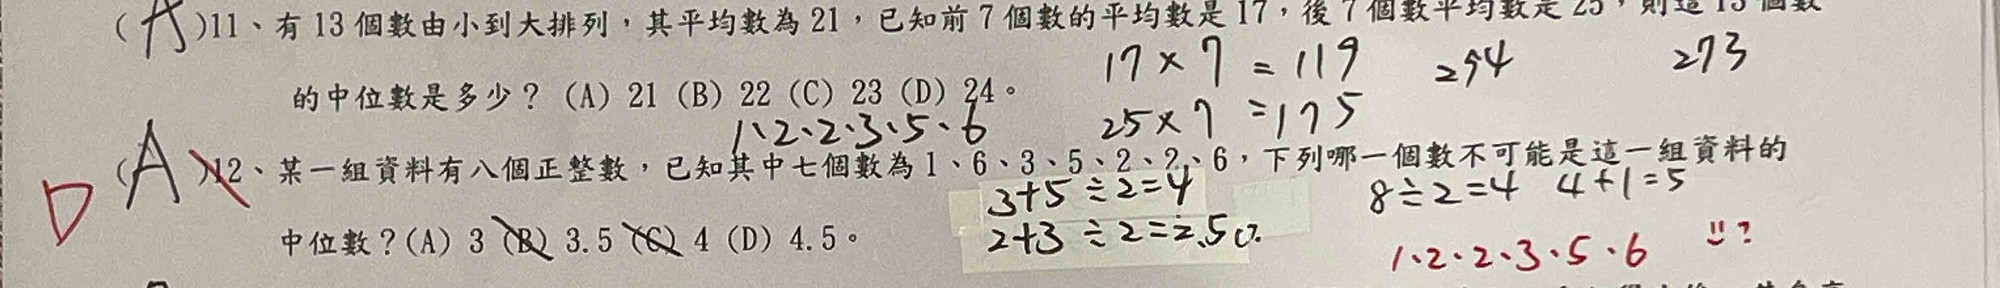 (A)11、有 13 個數由小到大排列，其平均數為 21，已知前 7 個數的平均數是 17，後 7 個數平均數是 25，則這 13 個數
17 × 7 = 119 294 273
的中位數是多少？(A) 21 (B) 22 (C) 23 (D) 24。
1、2、2、3、5、6 25 × 7 = 175
(A)12、某一組資料有八個正整數，已知其中七個數為 1、6、3、5、2、2、6，下列哪一個數不可能是這一組資料的
D
3+5 ÷ 2 = 4 8 ÷ 2 = 4 4 + 1 = 5
中位數？(A) 3 (B) 3.5 (C) 4 (D) 4.5。
2+3 ÷ 2 = 2.5
1、2、2、3、5、6 ?